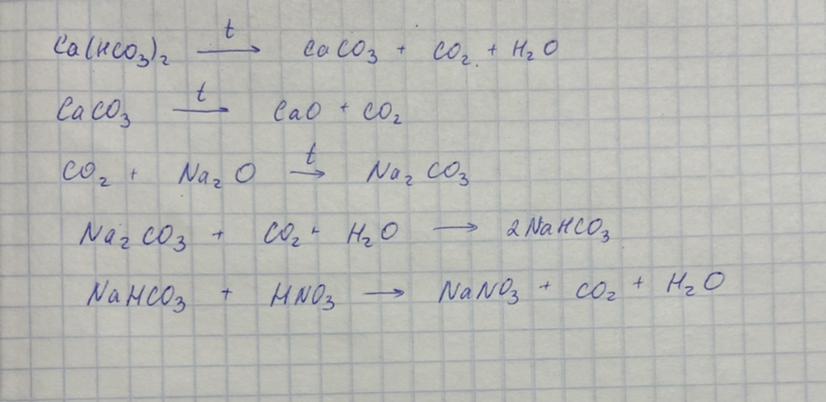 Ca(HCO₃)₂ —t→ CaCO₃ + CO₂ + H₂O
CaCO₃ —t→ CaO + CO₂
CO₂ + Na₂O —t→ Na₂CO₃
Na₂CO₃ + CO₂ + H₂O → 2NaHCO₃
NaHCO₃ + HNO₃ → NaNO₃ + CO₂ + H₂O